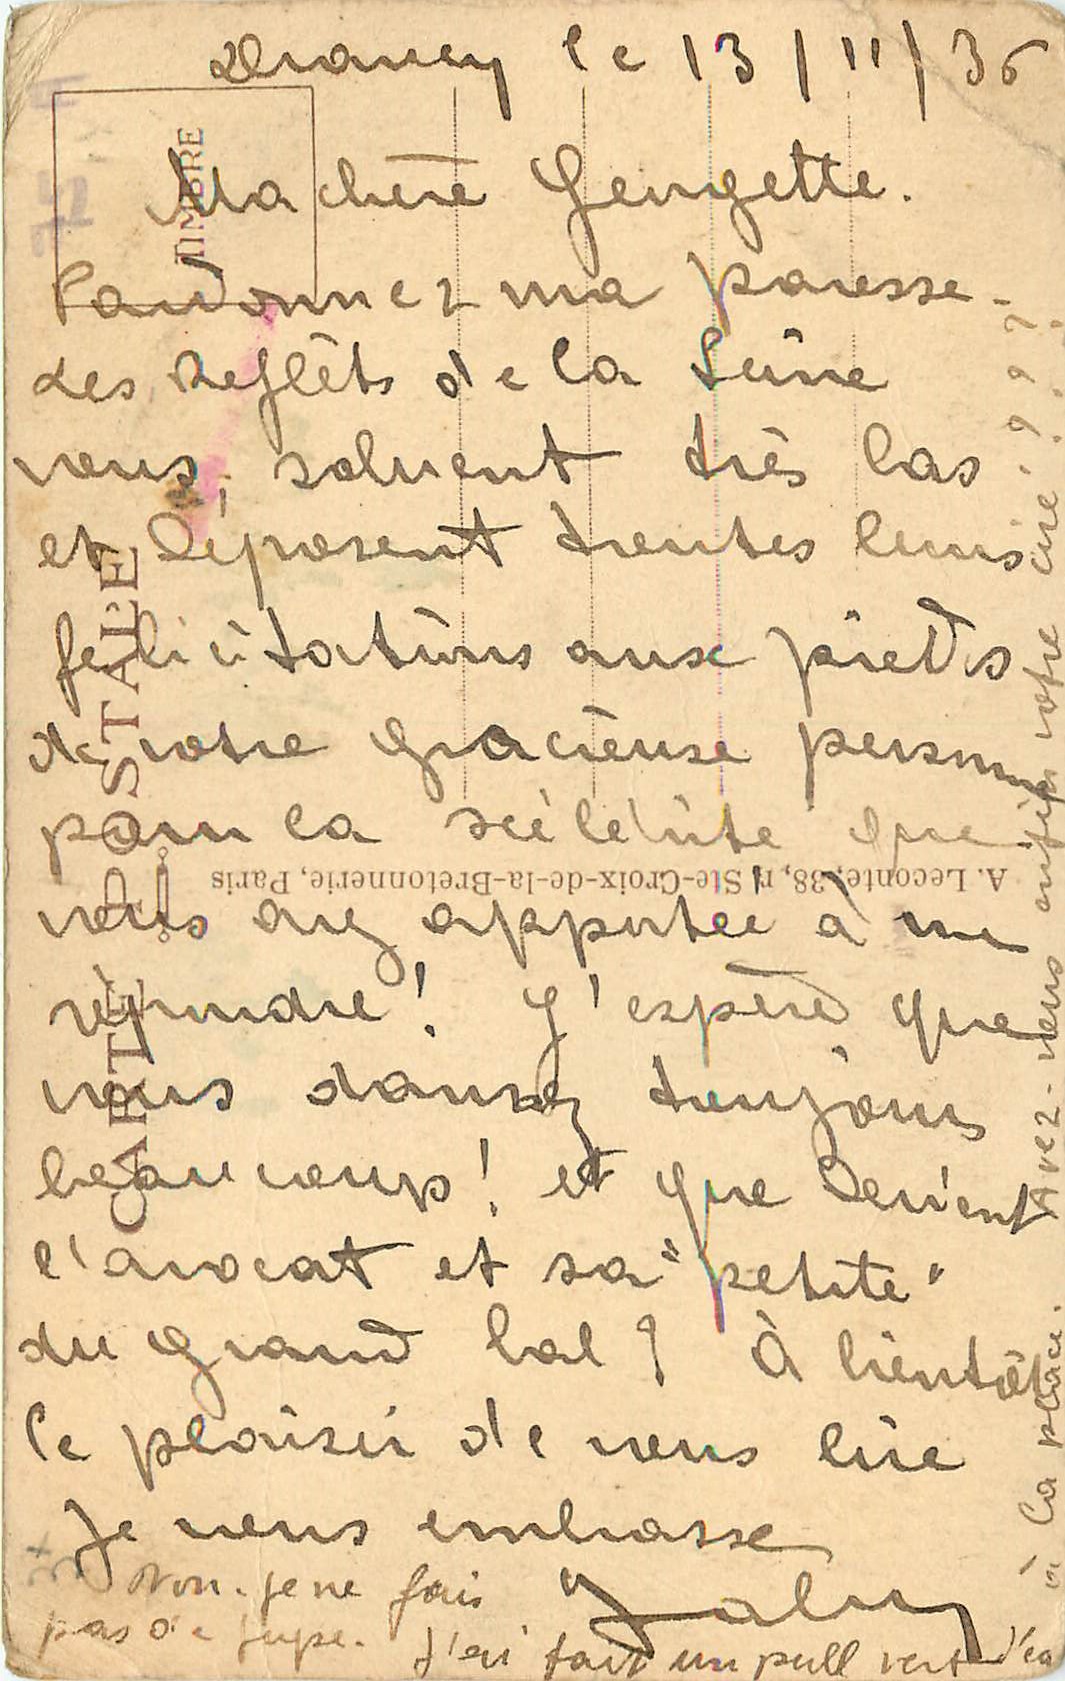 Drancy le 13/11/36
Ma chère Georgette.
Pardonnez ma paresse.
Les Reflêts de la Seine
vous saluent très bas
et déposent toutes leurs
felicitations aux pieds
de votre gracieuse personne
pour la célérité que
vous avez apportée à me
répondre! J'espère que
vous dansez toujours
beaucoup! et que devient
l'avocat et sa "petite"
du grand bal? À bientôt
le plaisir de vous lire
Je vous embrasse
Non. je ne fais
pas de jupe. J'ai fait un pull vert
à la place. Avez-vous enfin votre ciré????
TIMBRE
CARTE POSTALE
A. Leconte, 38, r. Ste-Croix-de-la-Bretonnerie, Paris